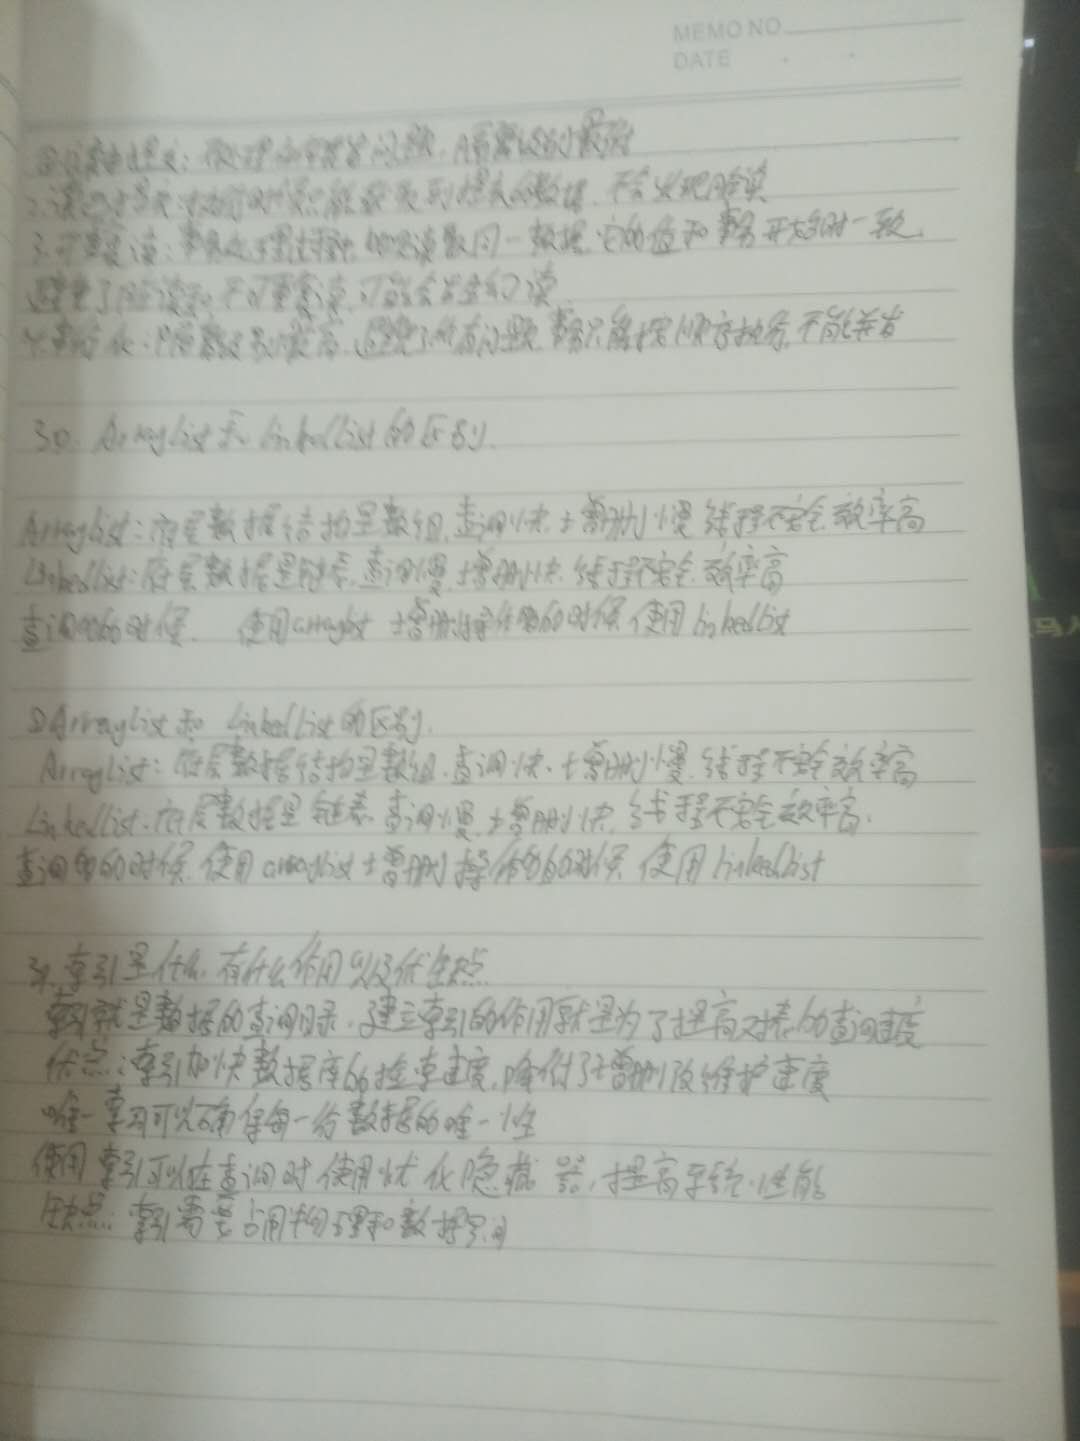 MEMO NO
DATE
3.可重复读：事务处理过程中，多次读取同一数据，它的值和事务开始时一致.
避免了脏读和不可重复读，可能会发生幻读
4.串行化：隔离级别最高，避免了所有问题，事务只能按顺序执行，不能并发
30. ArrayList和linkedList的区别.
ArrayList：底层数据结构是数组，查询快，增删慢，线程不安全，效率高
LinkedList：底层数据是链表，查询慢，增删快，线程不安全，效率高
查询多的时候 使用arraylist 增删操作多的时候 使用linkedlist
ArrayList和 LinkedList的区别.
ArrayList：底层数据结构是数组，查询快，增删慢，线程不安全，效率高
LinkedList.底层数据是链表，查询慢，增删快，线程不安全，效率高.
查询多的时候 使用arraylist 增删操作多的时候 使用linkedlist
索引是什么，有什么作用以及优缺点
索引就是数据的查询目录，建立索引的作用就是为了提高对表的查询速度
优点：索引加快数据库的检索速度，降低了增删改维护速度
唯一索引可以确保每一行数据的唯一性
使用索引可以在查询时使用优化隐藏器，提高系统性能
缺点：索引需要占用物理和数据空间